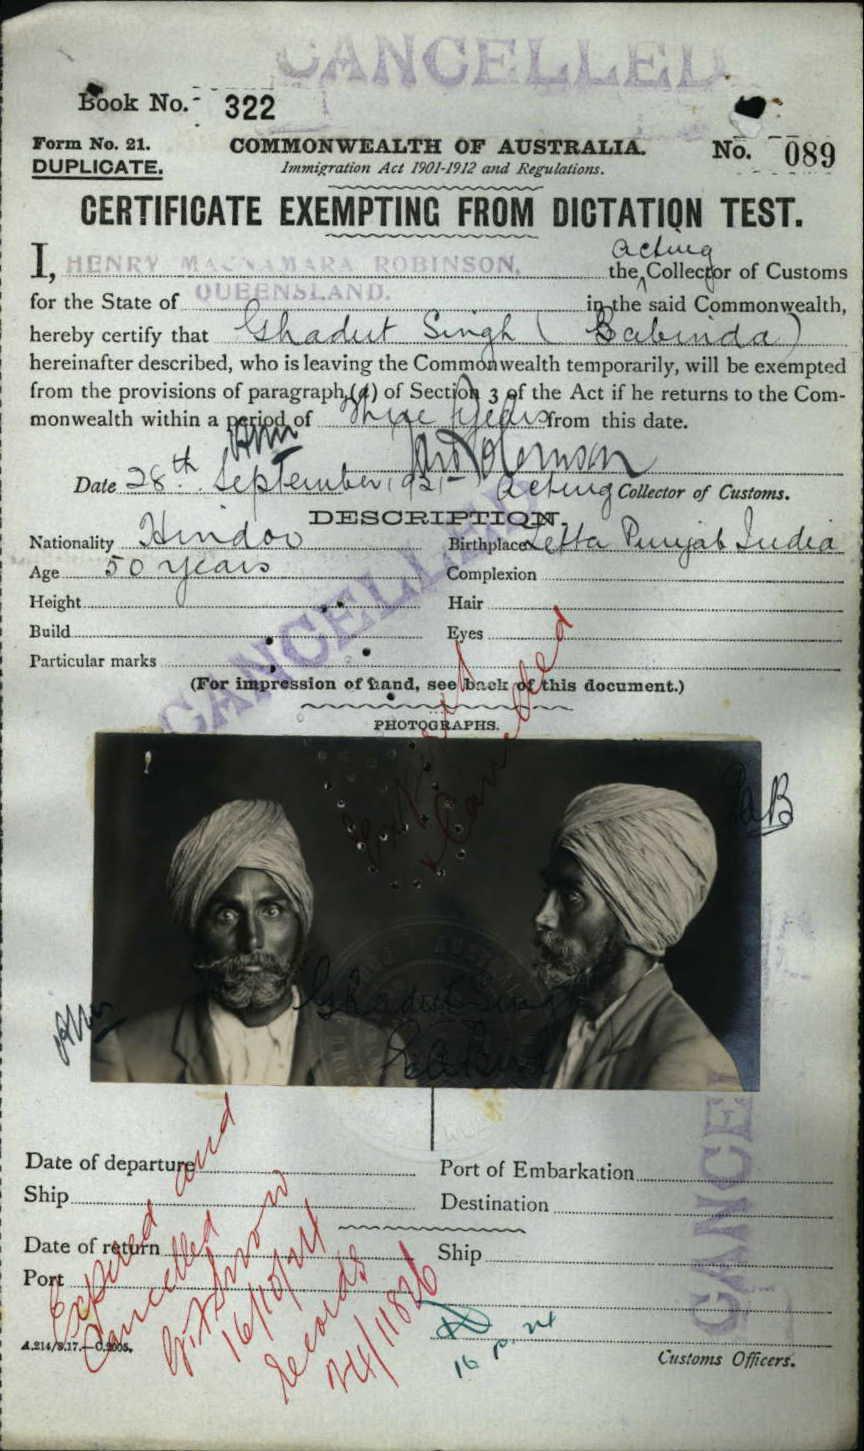 CANCELLED
Book No. 322
Form No. 21.
DUPLICATE.
COMMONWEALTH OF AUSTRALIA.
Immigration Act 1901-1912 and Regulations.
No. 089
CERTIFICATE EXEMPTING FROM DICTATION TEST.
I, HENRY MACNAMARA ROBINSON, the Acting Collector of Customs
for the State of QUEENSLAND. in the said Commonwealth,
hereby certify that Ghadut Singh (Babinda)
hereinafter described, who is leaving the Commonwealth temporarily, will be exempted
from the provisions of paragraph (a) of Section 3 of the Act if he returns to the Com-
monwealth within a period of three years from this date.
Date 28th September 1921 Acting Collector of Customs.
DESCRIPTION.
Nationality Hindoo Birthplace Letta Punjab India
Age 50 years Complexion
Height Hair
Build Eyes
Particular marks
CANCELLED
(For impression of hand, see back of this document.)
PHOTOGRAPHS.
Cancelled
Ghadut Singh
Date of departure Port of Embarkation
Ship Destination
Date of return Ship
Port
CANCEL
Expired and
Cancelled
16/10/24
Records
24/11826
16.10.24
A.214/8.17.—C.2005.
Customs Officers.